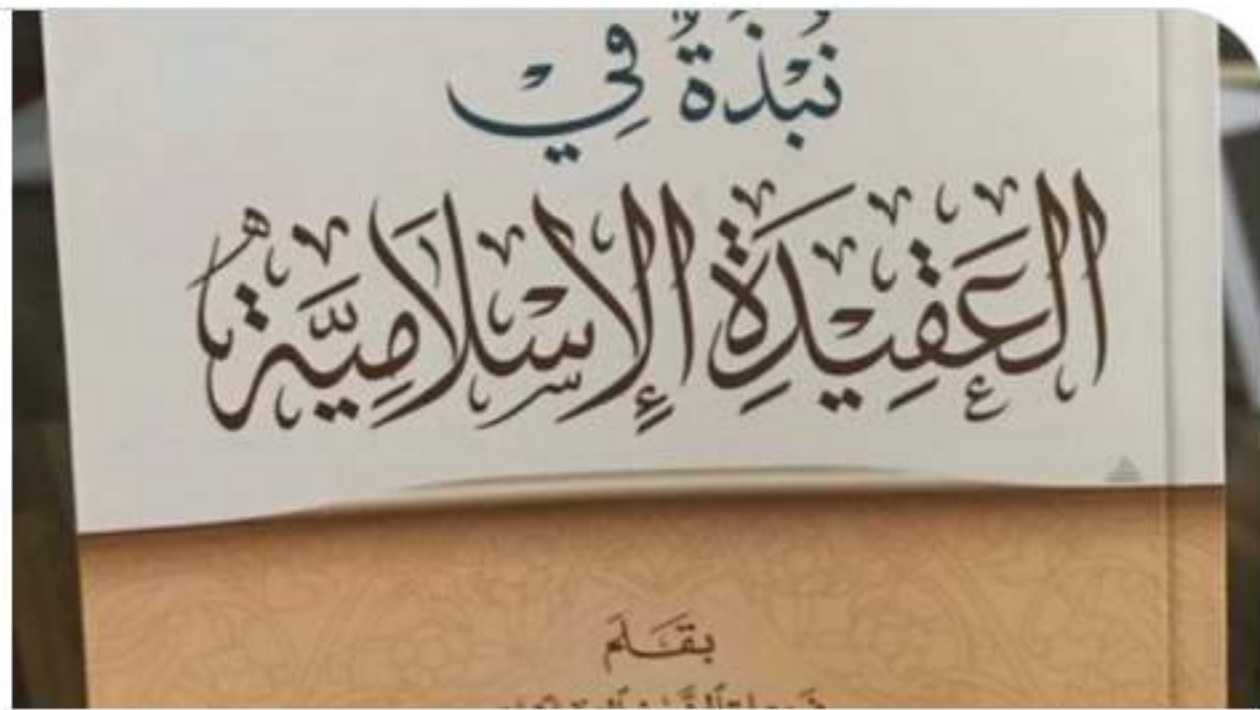 نُبْذَةٌ فِي
العَقِيدَةِ الإِسْلَامِيَّةِ
بِقَلَم